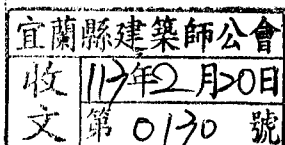 宜蘭縣建築師公會
收文
113年2月20日
第0130號